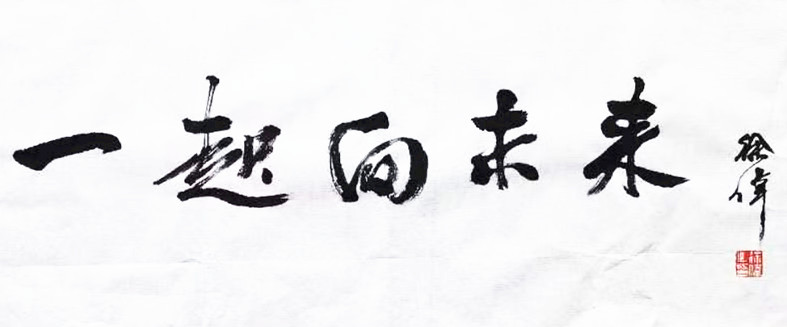 一起向未来
徐伟